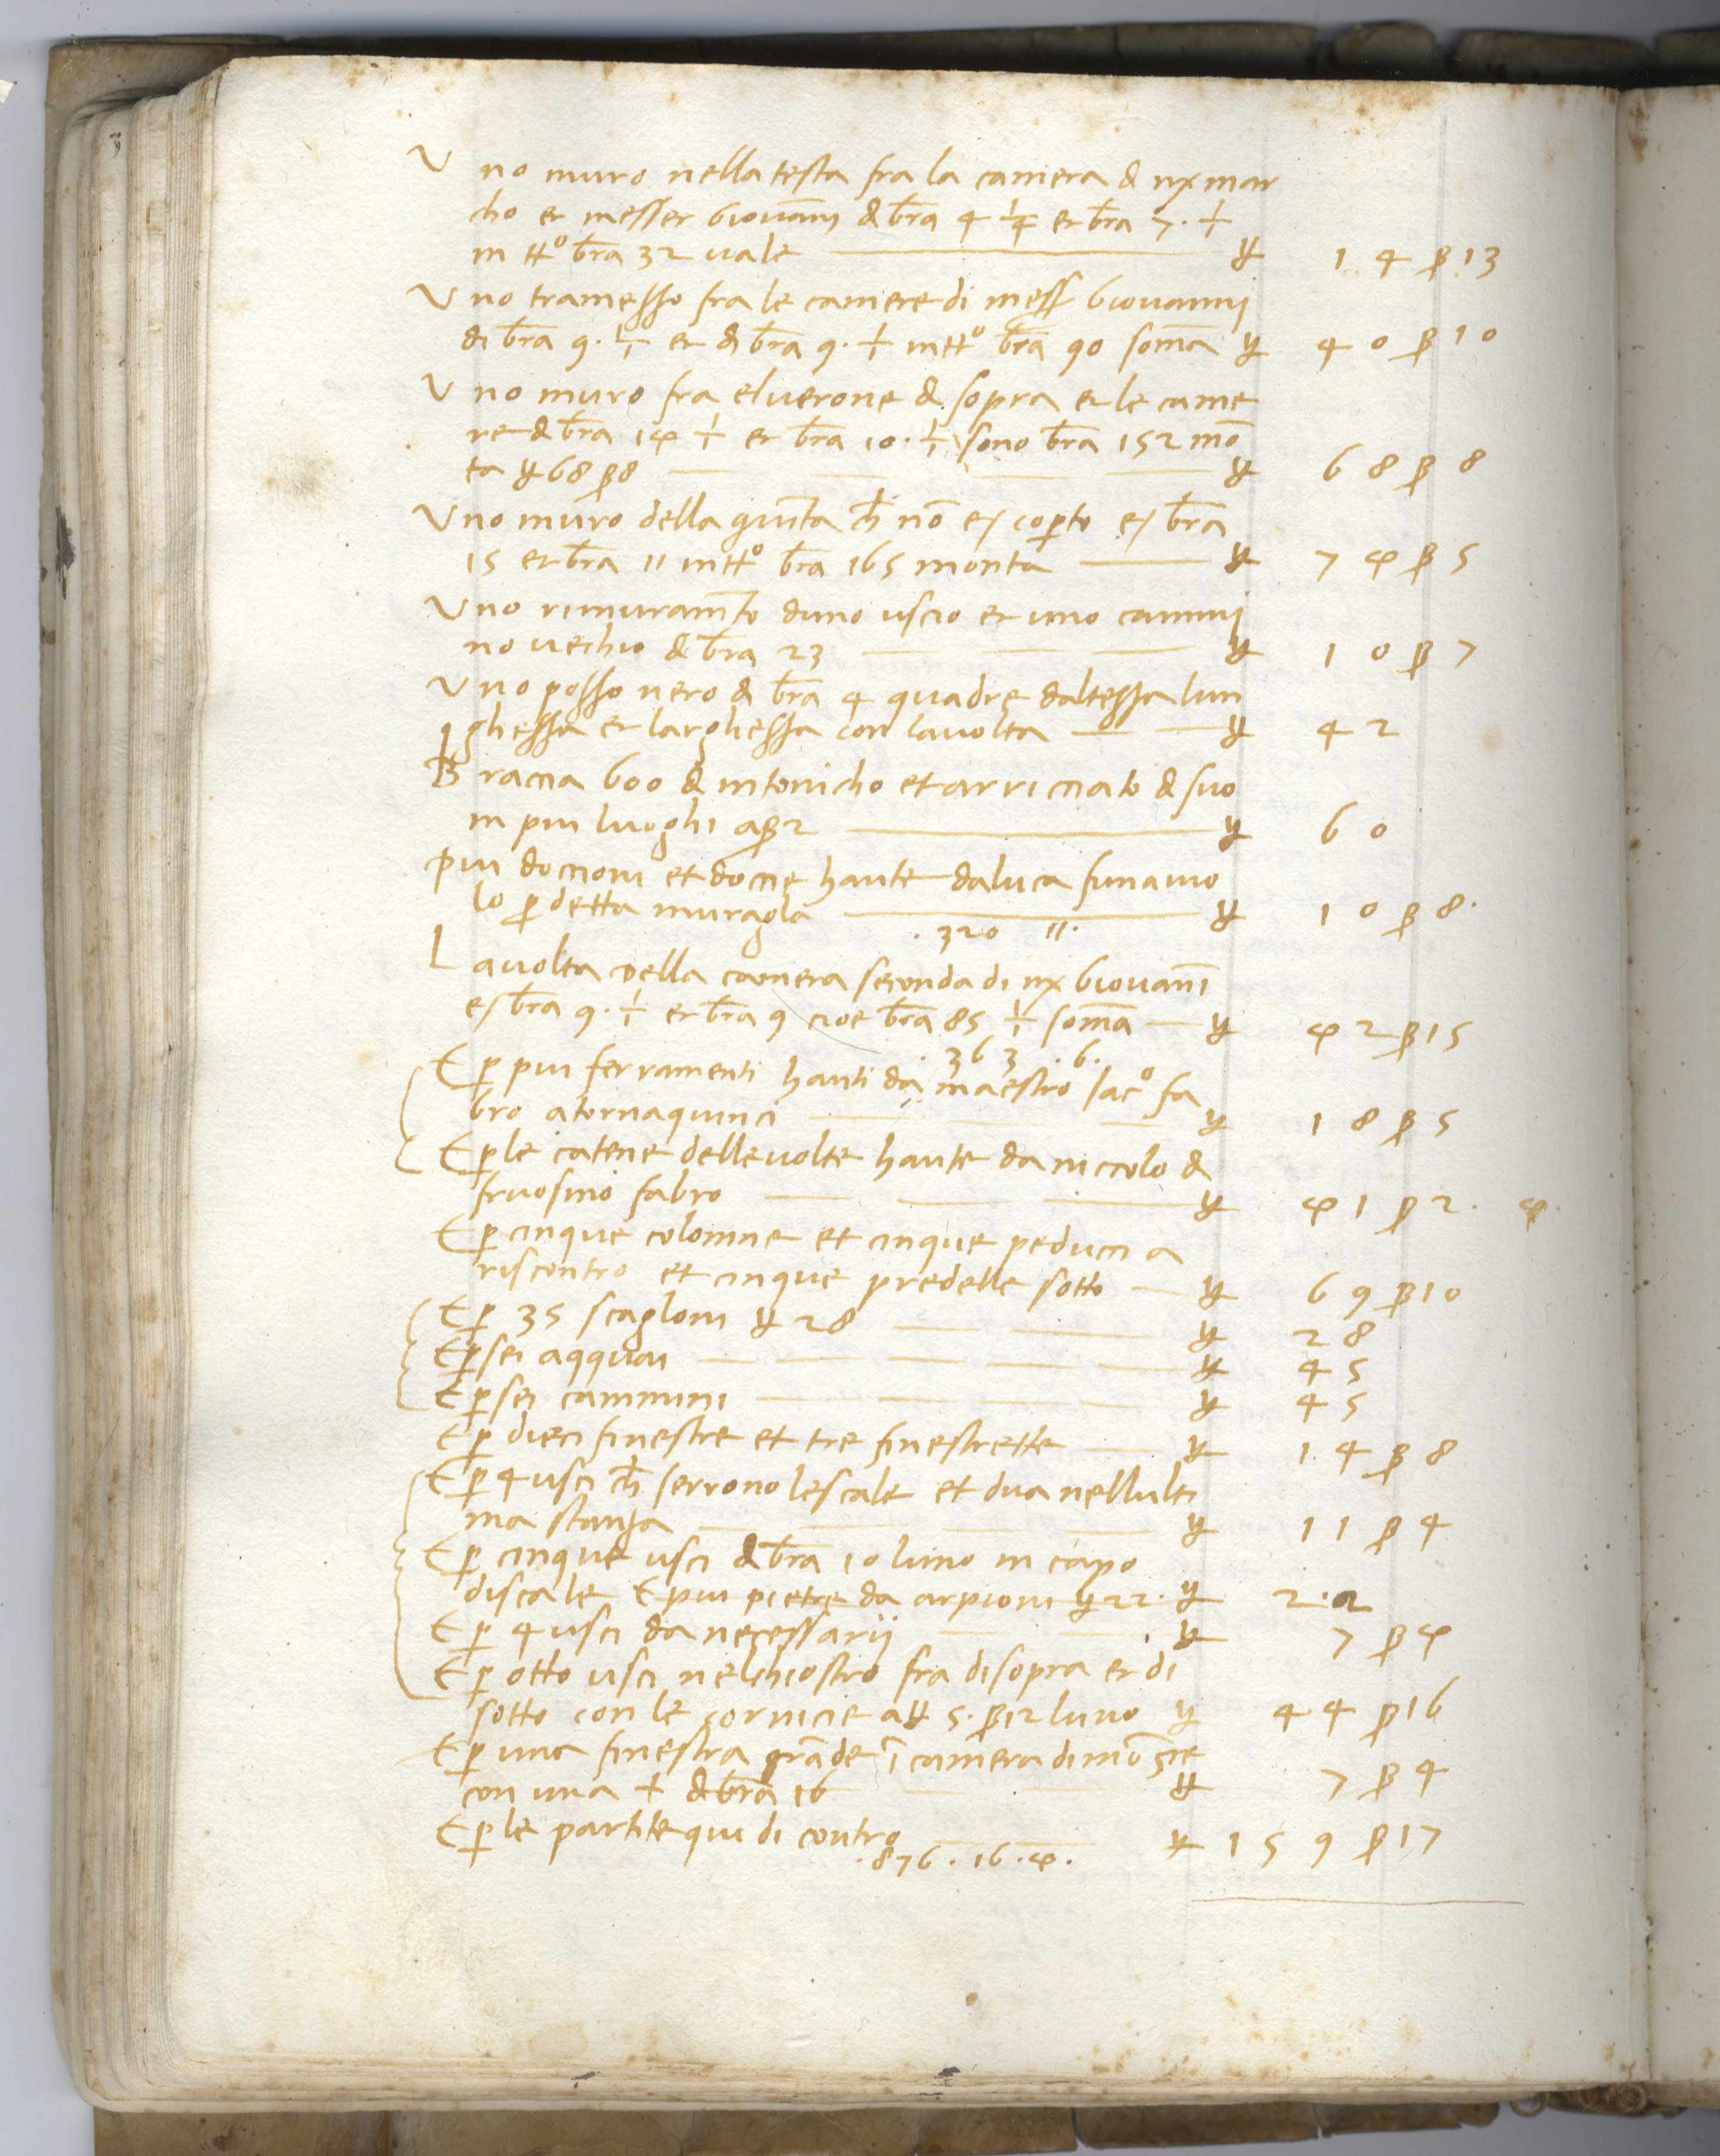 Uno muro nella testa fra la camera d ṁ mar
cho et messer Giovāni d br̄a 4 ¼ et br̄a 7·½
in tt° br̄a 32 vale — ₶ 14 β 13
Uno tramesso fra le camere di mess Giovannj
di br̄a 9·½ et di br̄a 9·½ in tt° br̄a 90 som̄a ₶ 40 β 10
Uno muro fra el verone d sopra et le came
re d br̄a 14 ½ et br̄a 10·½ sono br̄a 152 mō
ta ₶ 68 β 8 — ₶ 68 β 8
Uno muro della giunta ch̄ nō e/ cop̄to e/ br̄a
15 et br̄a 11 in tt° br̄a 165 monta — ₶ 74 β 5
Uno rimuram̄to duno uscio et uno cammj
no vechio d br̄a 23 — ₶ 10 β 7
Uno pozzo nero d br̄a 4 quadre daltezza lun
ghezza et larghezza con la volta — ₶ 42
Bracia 600 d intonicho et arriciato d suo
in piu luoghi a β 2 — ₶ 60
Piu docioni et docie haute da luca funaiuo
lo p̄ detta muragla — ₶ 10 β 8·
·320 11·
La volta della camera seconda di ṁ Giovān̄i
e/ br̄a 9·½ et br̄a 9 cioe br̄a 85 ½ som̄a — ₶ 42 β 15
·363·6·
E p̄ piu ferramenti hauti da maestro Iac° fa
bro a tornaquinci — ₶ 18 β 5
E p̄ le catene delle volte haute da niccolo d
fruosino fabro — ₶ 41 β 2· 4·
E p̄ cinque colonne et cinque peducci a
riscontro et cinque predelle sotto — ₶ 69 β 10
E p̄ 35 scagloni ₶ 28 — ₶ 28
E p̄ sei aqquai — ₶ 45
E p̄ sei cammini — ₶ 45
E p̄ dieci finestre et tre finestrette — ₶ 14 β 8
E p̄ 4 usci ch̄ serrono le scale et dua nellulti
ma stanza — ₶ 11 β 4
E p̄ cinque usci d br̄a 10 luno in capo
di scale E piu pietre da arpioni ₶ 22· ₶ 2·2
E p̄ 4 usci da necessarij — ₶ 7 β 4
E p̄ otto usci nel chiostro fra di sopra et di
sotto con le cornicie a ₶ 5· β 12 luno ₶ 44 β 16
E p̄ una finestra grāde ī camera di mō s̄re
con una + d br̄a 16 — ₶ 7 β 4
E p̄ le partite qui di contro — ₶ 159 β 17
·876·16·4·